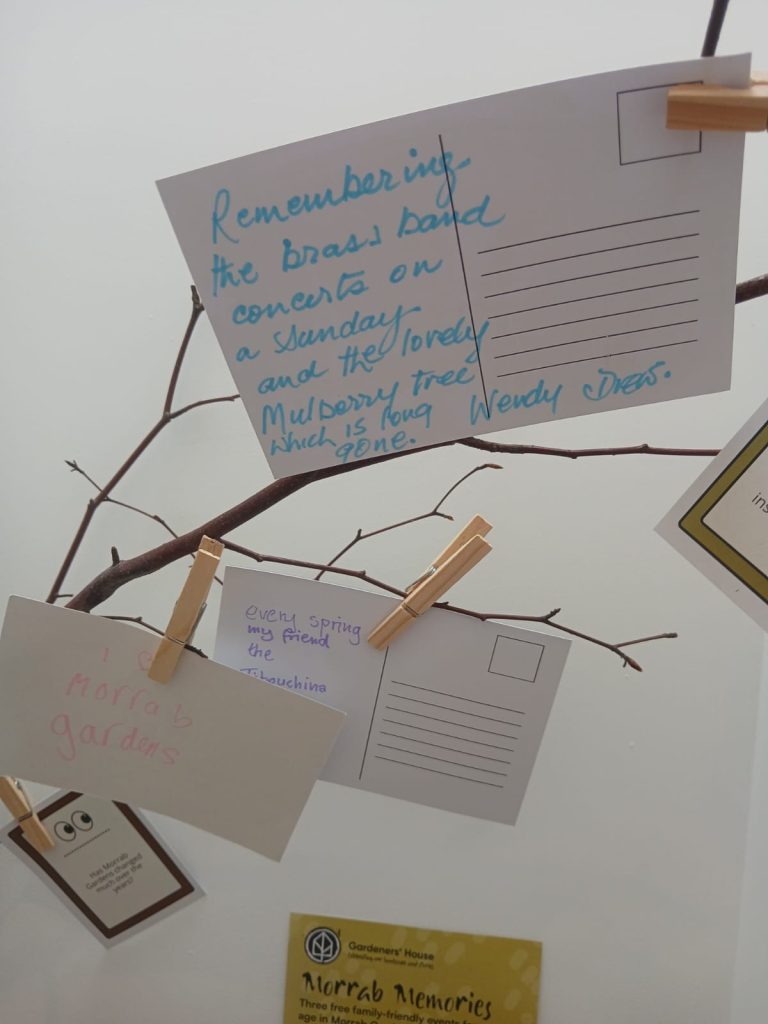 Remembering
the brass band
concerts on
a Sunday
and the lovely
Mulberry tree
which is long
gone.
Wendy Drew.
ins
every spring
my friend
the
Tibouchina
I
Morrab
gardens
Has Morrab
Gardens changed
much over the
years?
Gardeners' House
Morrab Memories
Three free family-friendly events
age in Morrab